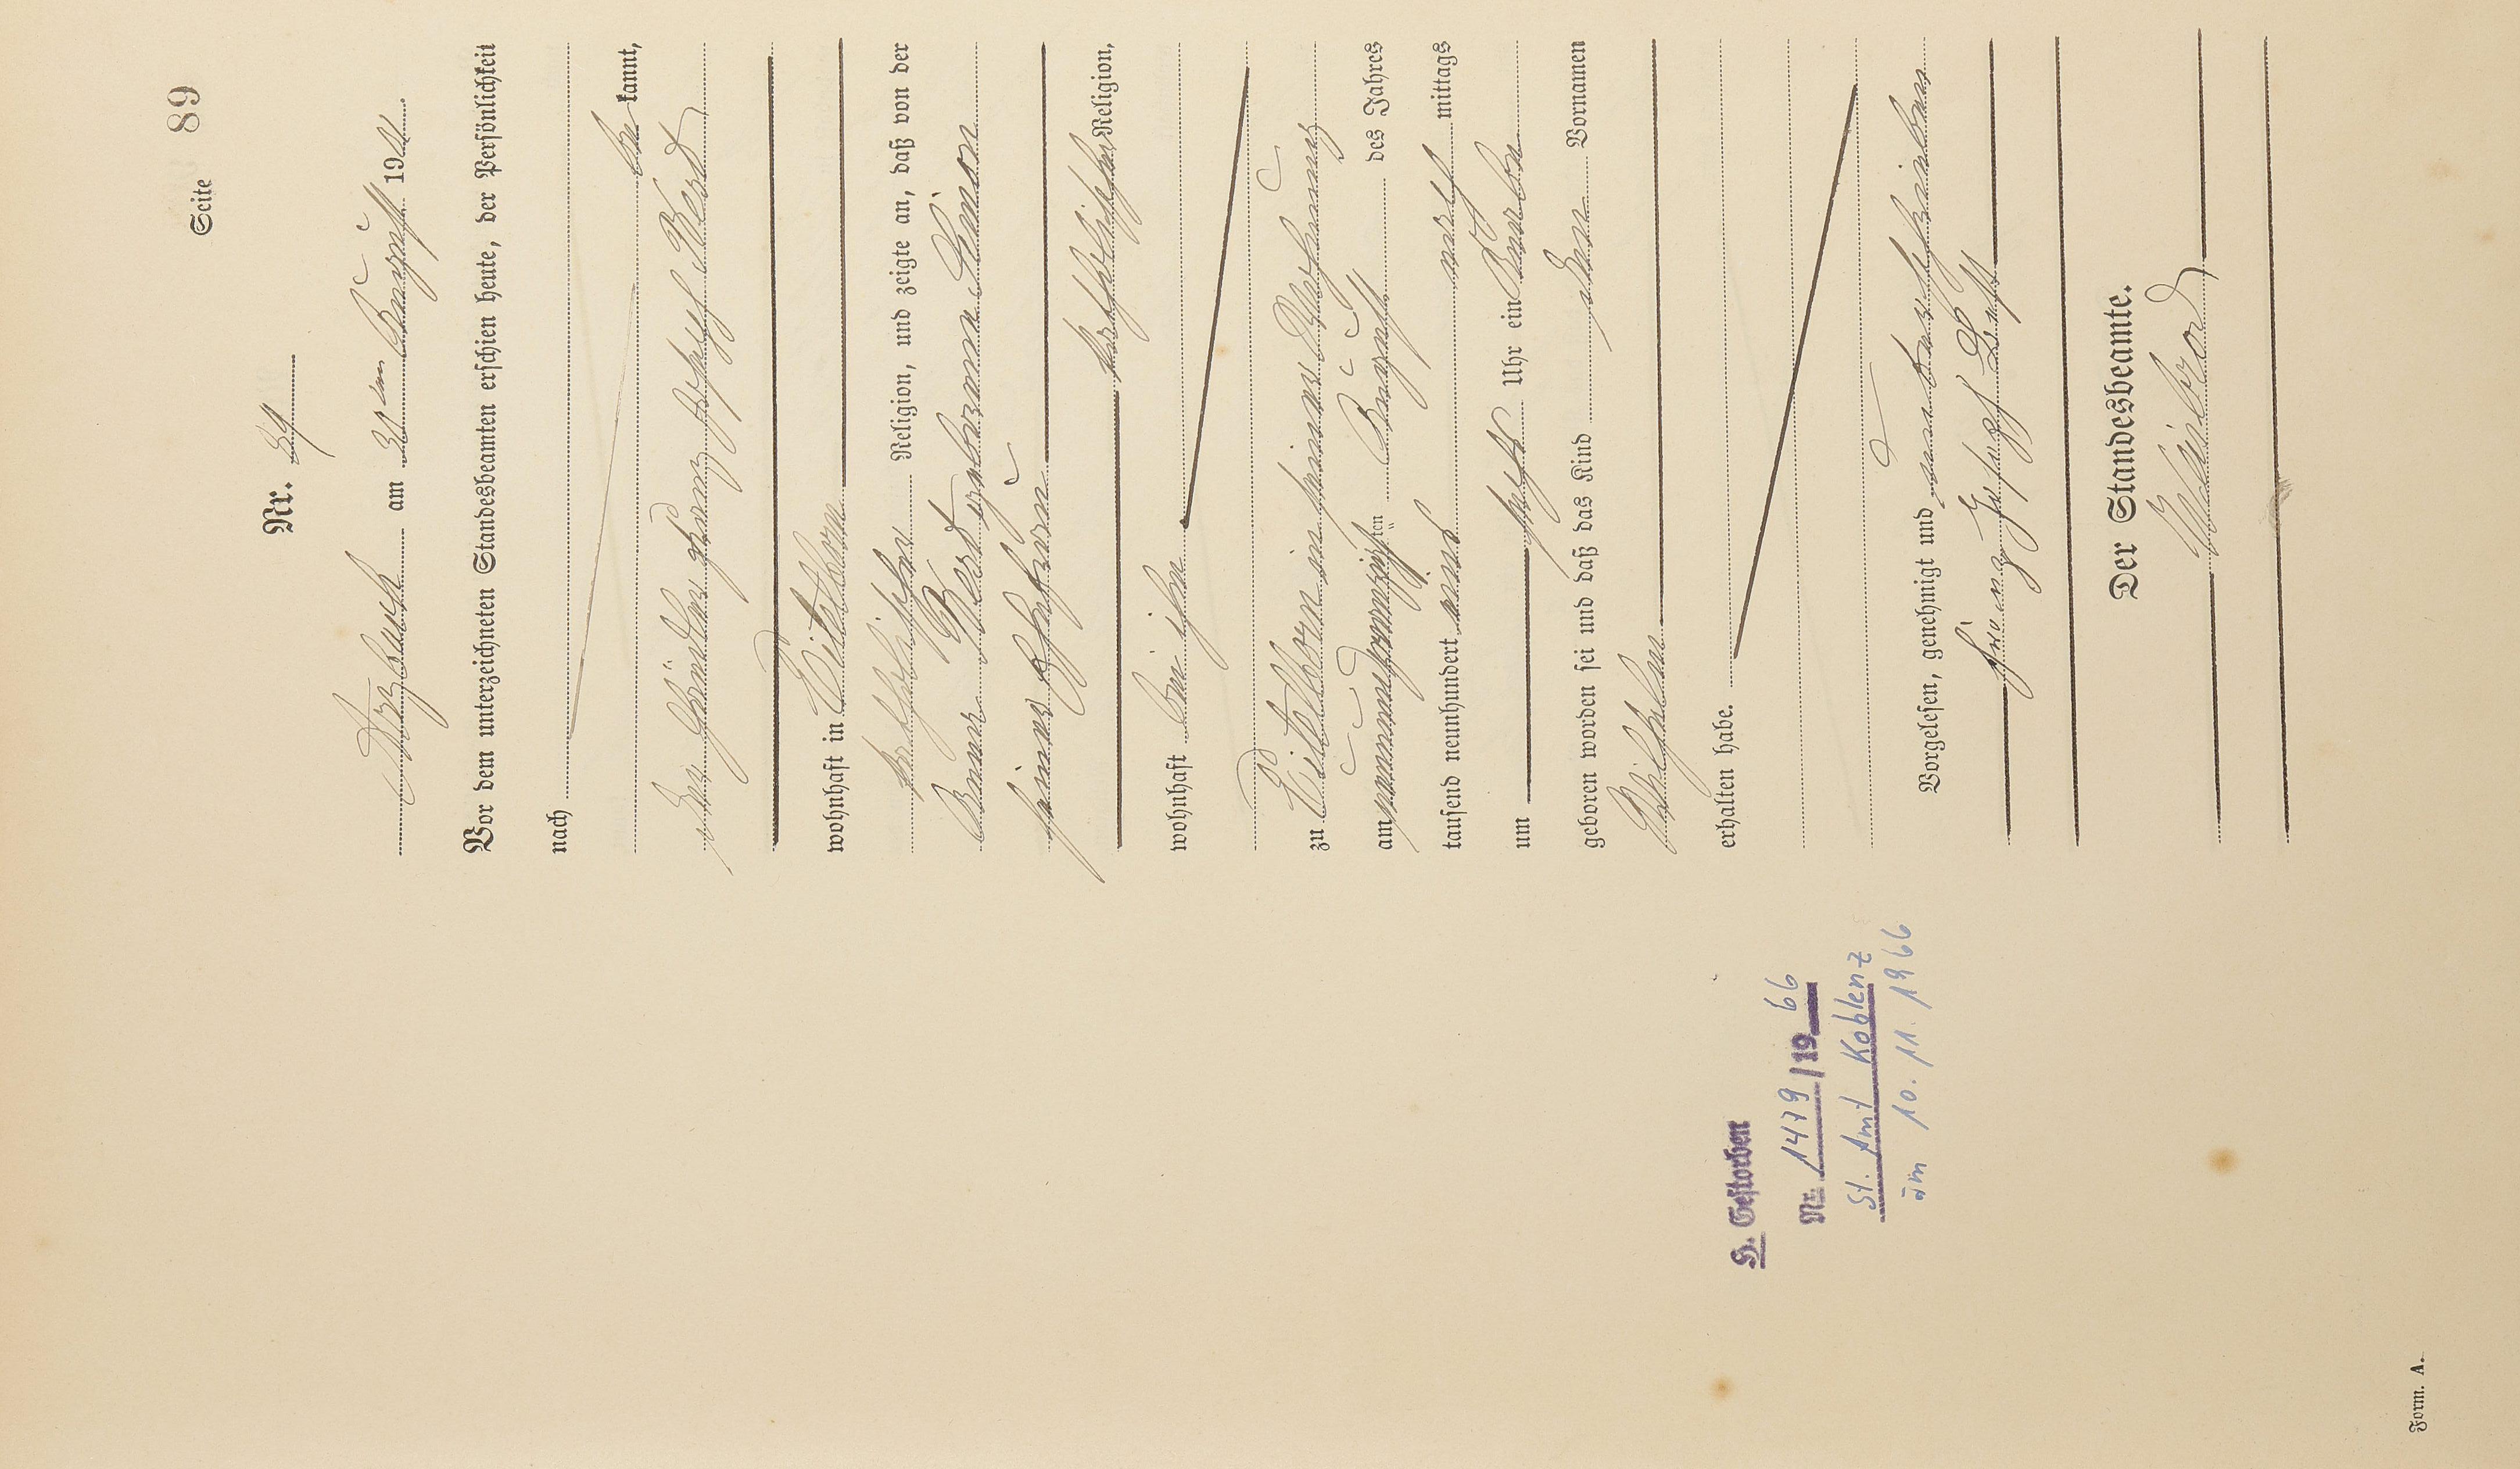 Seite 89
Nr. 89
Arzbach am August 19
Vor dem unterzeichneten Standesbeamten erschien heute, der Persönlichkeit
nach
be kannt,
der Händler Franz Joseph Best
wohnhaft in Eitelborn
katholischer Religion, und zeigte an, daß von der
Anna Best geborenen Simon
seiner Ehefrau
katholischer Religion,
wohnhaft bei ihm
zu Eitelborn in seiner Wohnung
am neunundzwanzigsten August des Jahres
tausend neunhundert nach mittags
um sechs Uhr ein Knabe
geboren worden sei und daß das Kind den Vornamen
Wilhelm
erhalten habe.
Vorgelesen, genehmigt und unterschrieben
Franz Joseph Best
Der Standesbeamte.
H. Gestorben
Nr. 1479/1966
St. Amt Koblenz
am 10. 11. 1966
Form. A.